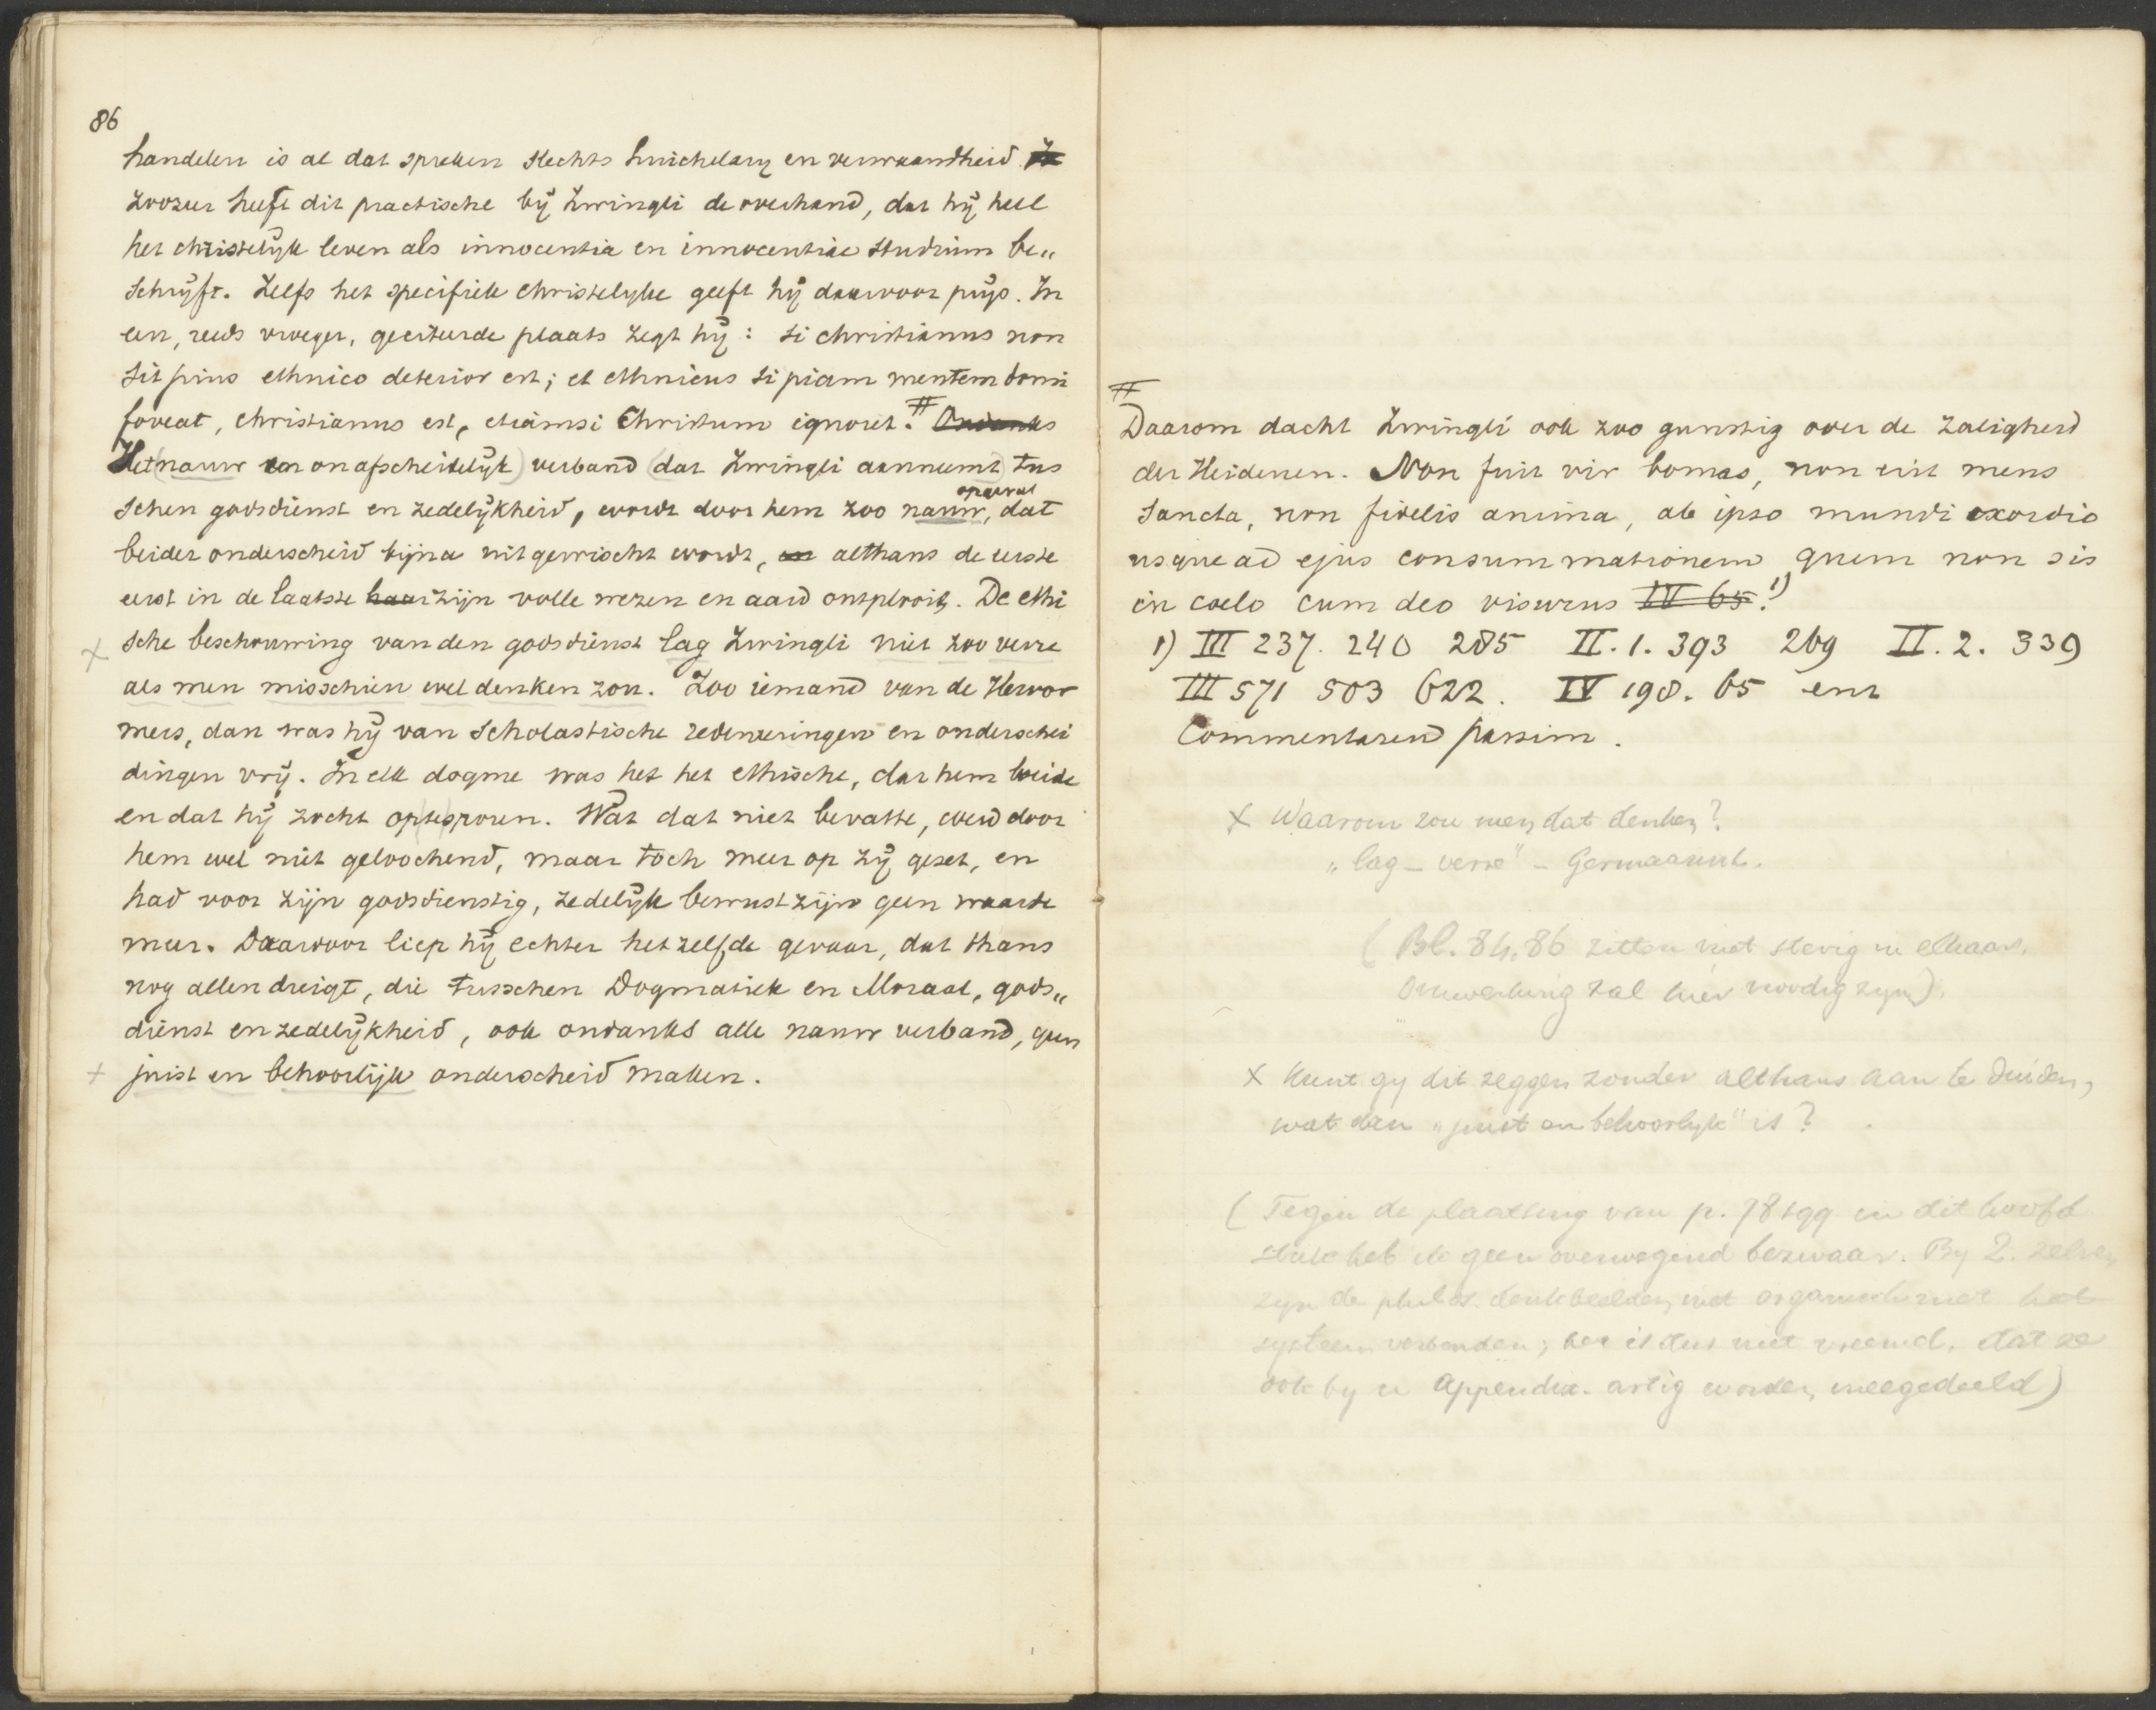 86
handelen is al dat spreken slechts huichelary en verwaandheid
Zoozeer heeft dit practische bij Zwingli de overhand, dat hij heel
het christelijk leven als innocentia en innocentiae studium be„
schrijft. Zelfs het specifiek christelijke geeft hij daarvoor prijs. In
een, reeds vroeger, geciteerde plaats zegt hij: si christianus non
sit pius ethnico deterior est; et ethnicus si piam mentem domi
foveat, christianus est, etiamsi Christum ignoret. # Ondanks
Het (nauw en onafscheidelijk) verband (dat Zwingli aanneemt) tus
schen godsdienst en zedelijkheid, wordt door hem zoo nauw opgevat, dat
beider onderscheid bijna uitgewischt wordt, en althans de eerste
eerst in de laatste haar zijn volle wezen en aard ontplooit. De ethi
x sche beschouwing van den godsdienst lag Zwingli niet zoo verre
als men misschien wel denken zou. Zoo iemand van de Hervor
mers, dan was hij van Scholastische redeneeringen en onderschei
dingen vrij. In elk dogme was het het ethische, dat hem boeide
en dat hij zocht op te sporen. Wat dat niet bevatte, werd door
hem wel niet geloochend, maar toch meer op zij gezet, en
had voor zijn godsdienstig, zedelijk bewustzijn geen waarde
meer. Daarvoor liep hij echter hetzelfde gevaar, dat thans
nog allen dreigt, die tusschen Dogmatiek en Moraal, gods„
dienst en zedelijkheid, ook ondanks alle nauw verband, geen
x juist en behoorlijk onderscheid maken.
#
Daarom dacht Zwingli ook zoo gunstig over de zaligheid
der Heidenen. Non fuit vir bonus, non erit mens
sancta, non fidelis anima, ab ipso mundi exordio
usque ad ejus consummationem quem non sis
in coelo cum deo visurus IV 65. 1)
1) III 237. 240 285 II. 1. 393 269 II. 2. 339
III 571 503 622. IV 198. 65 enz
Commentaren passim.
x Waarom zou men dat denken?
„lag – verre" – Germaanisme.
(Bl. 84, 86 zitten niet stevig in elkaar.
Omwerking zal hier noodig zyn).
x Kunt gy dit zeggen zonder althans aan te duiden,
wat dan „juist en behoorlyk" is?
(Tegen de plaatsing van p. 78 sqq in dit hoofd
stuk heb ik geen overwegend bezwaar. By Z. zelven
zyn de philos. denkbeelden niet organisch met het
systeem verbonden; het is dus niet vreemd, dat ze
ook by u appendix-artig worden meegedeeld)